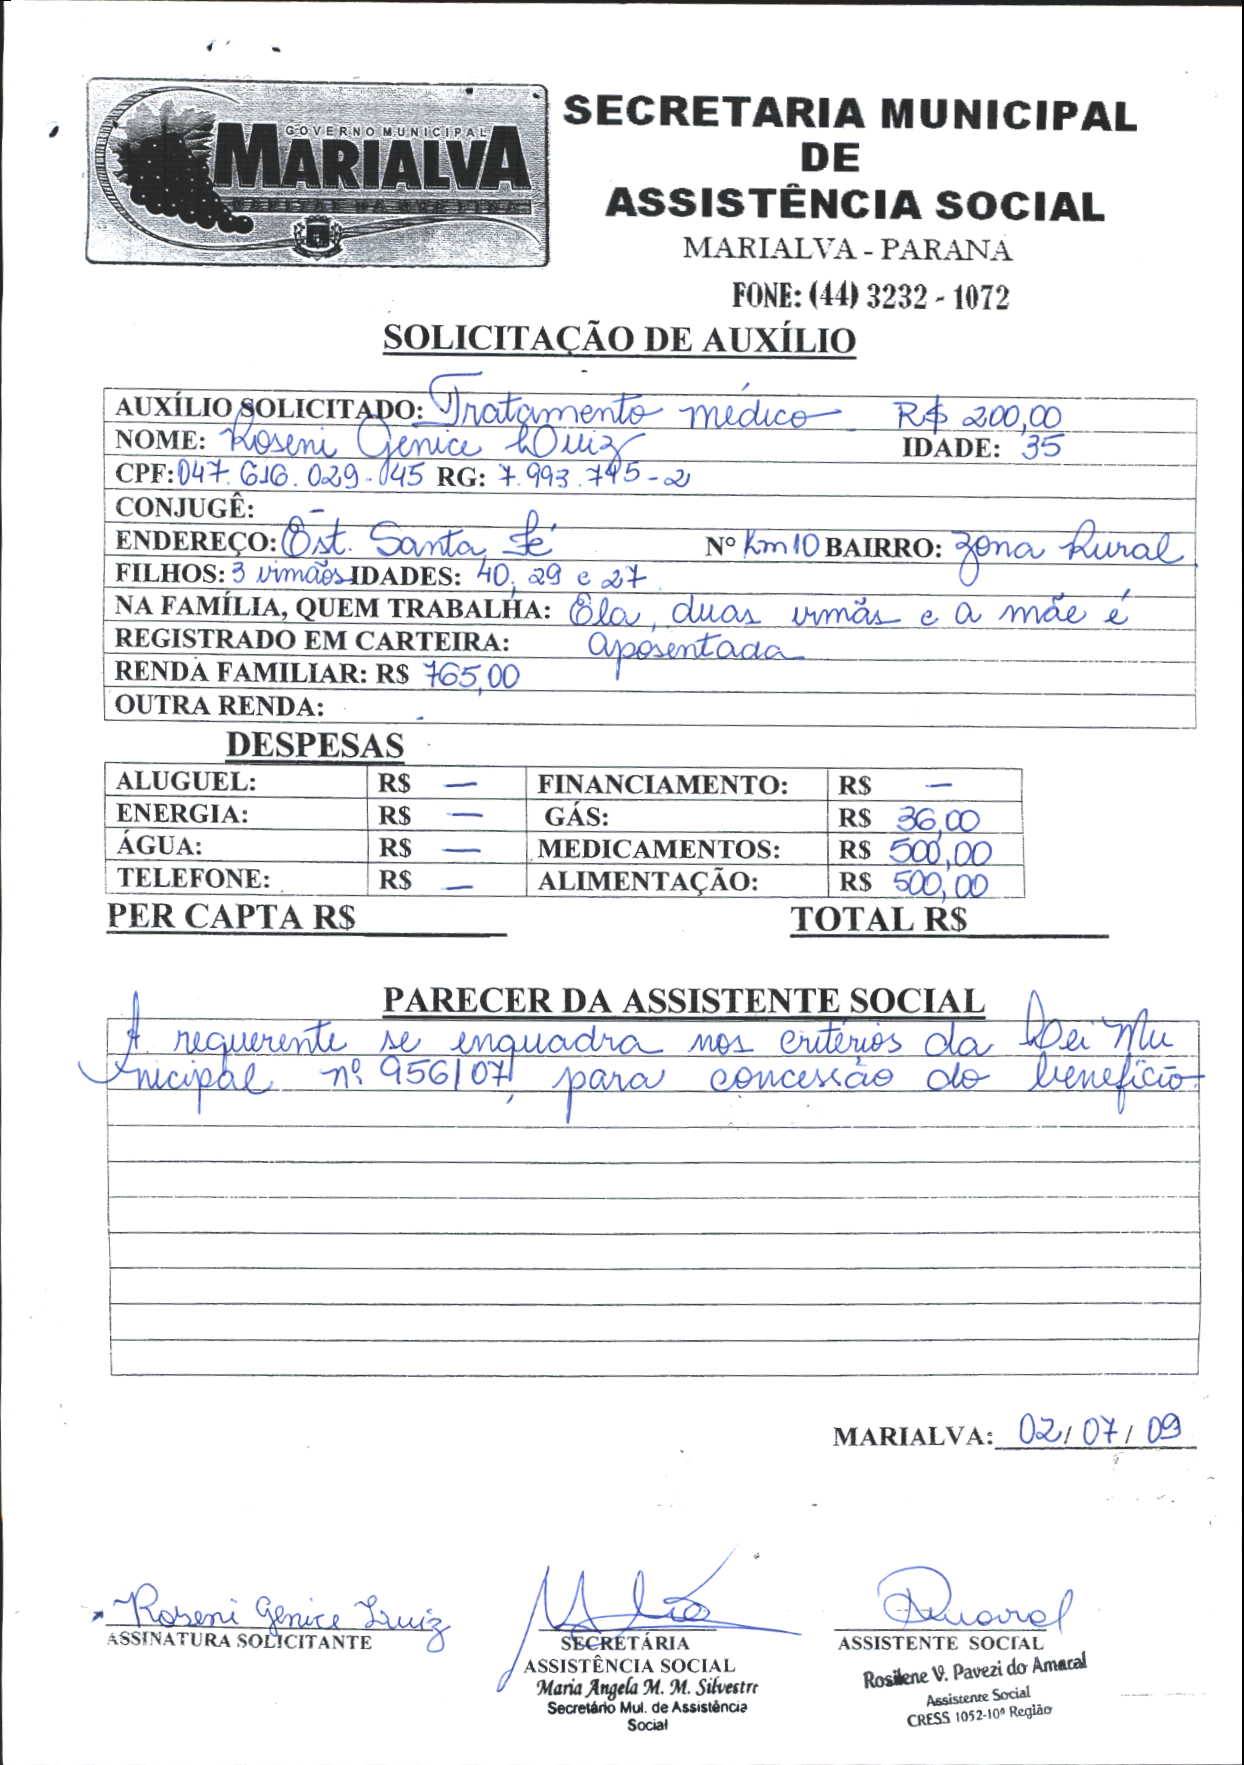 GOVERNO MUNICIPAL
MARIALVA
SECRETARIA MUNICIPAL
DE
ASSISTÊNCIA SOCIAL
MARIALVA - PARANÁ
FONE: (44) 3232 - 1072
SOLICITAÇÃO DE AUXÍLIO
AUXÍLIO SOLICITADO: Tratamento médico R$ 200,00
NOME: Roseni Genice Luiz IDADE: 35
CPF: 047.616.029-045 RG: 7.993.745-2
CONJUGÊ: -
ENDEREÇO: Est. Santa Fé Nº Km 10 BAIRRO: Zona Rural
FILHOS: 3 irmãos IDADES: 40, 29 e 27
NA FAMÍLIA, QUEM TRABALHA: Ela, duas irmãs e a mãe é
REGISTRADO EM CARTEIRA: aposentada
RENDA FAMILIAR: R$ 765,00
OUTRA RENDA: -
DESPESAS
ALUGUEL: R$ — FINANCIAMENTO: R$ —
ENERGIA: R$ — GÁS: R$ 36,00
ÁGUA: R$ — MEDICAMENTOS: R$ 500,00
TELEFONE: R$ — ALIMENTAÇÃO: R$ 500,00
PER CAPTA R$ TOTAL R$
PARECER DA ASSISTENTE SOCIAL
A requerente se enquadra nos critérios da Lei Mu
nicipal nº 956/07, para concessão do benefício.
MARIALVA: 02/07/09
Roseni Genice Luiz
ASSINATURA SOLICITANTE
SECRETÁRIA
ASSISTÊNCIA SOCIAL
Maria Angela M. M. Silvestre
Secretário Mul. de Assistência
Social
ASSISTENTE SOCIAL
Rosilene V. Pavezi do Amaral
Assistente Social
CRESS 1052-10ª Região